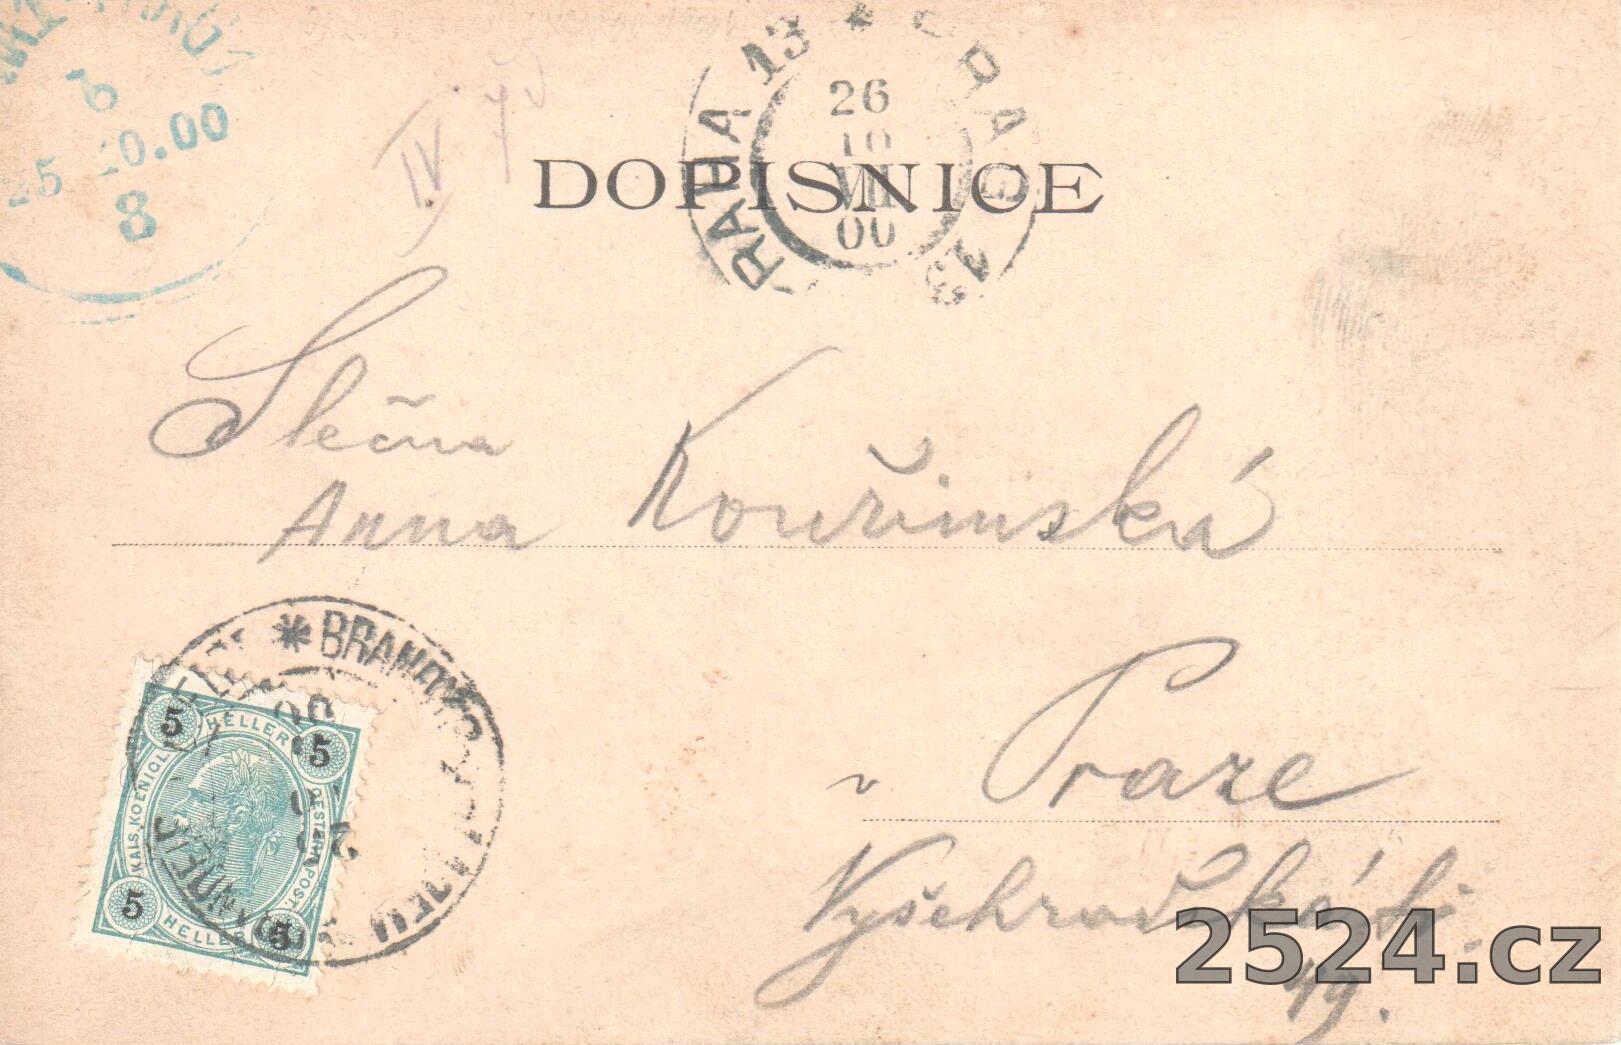 6
25 10.00
8
IV
PRAHA 13 * PRAG 13
26
10
VII
00
DOPISNICE
Slečna
Anna Kouřimská
v Praze
Vyšehradská tř.
49.
* BRANDÝS
00
5 HELLER 5
KAIS. KOENIGL. OESTERR. POST.
5 HELLER 5
2524.cz